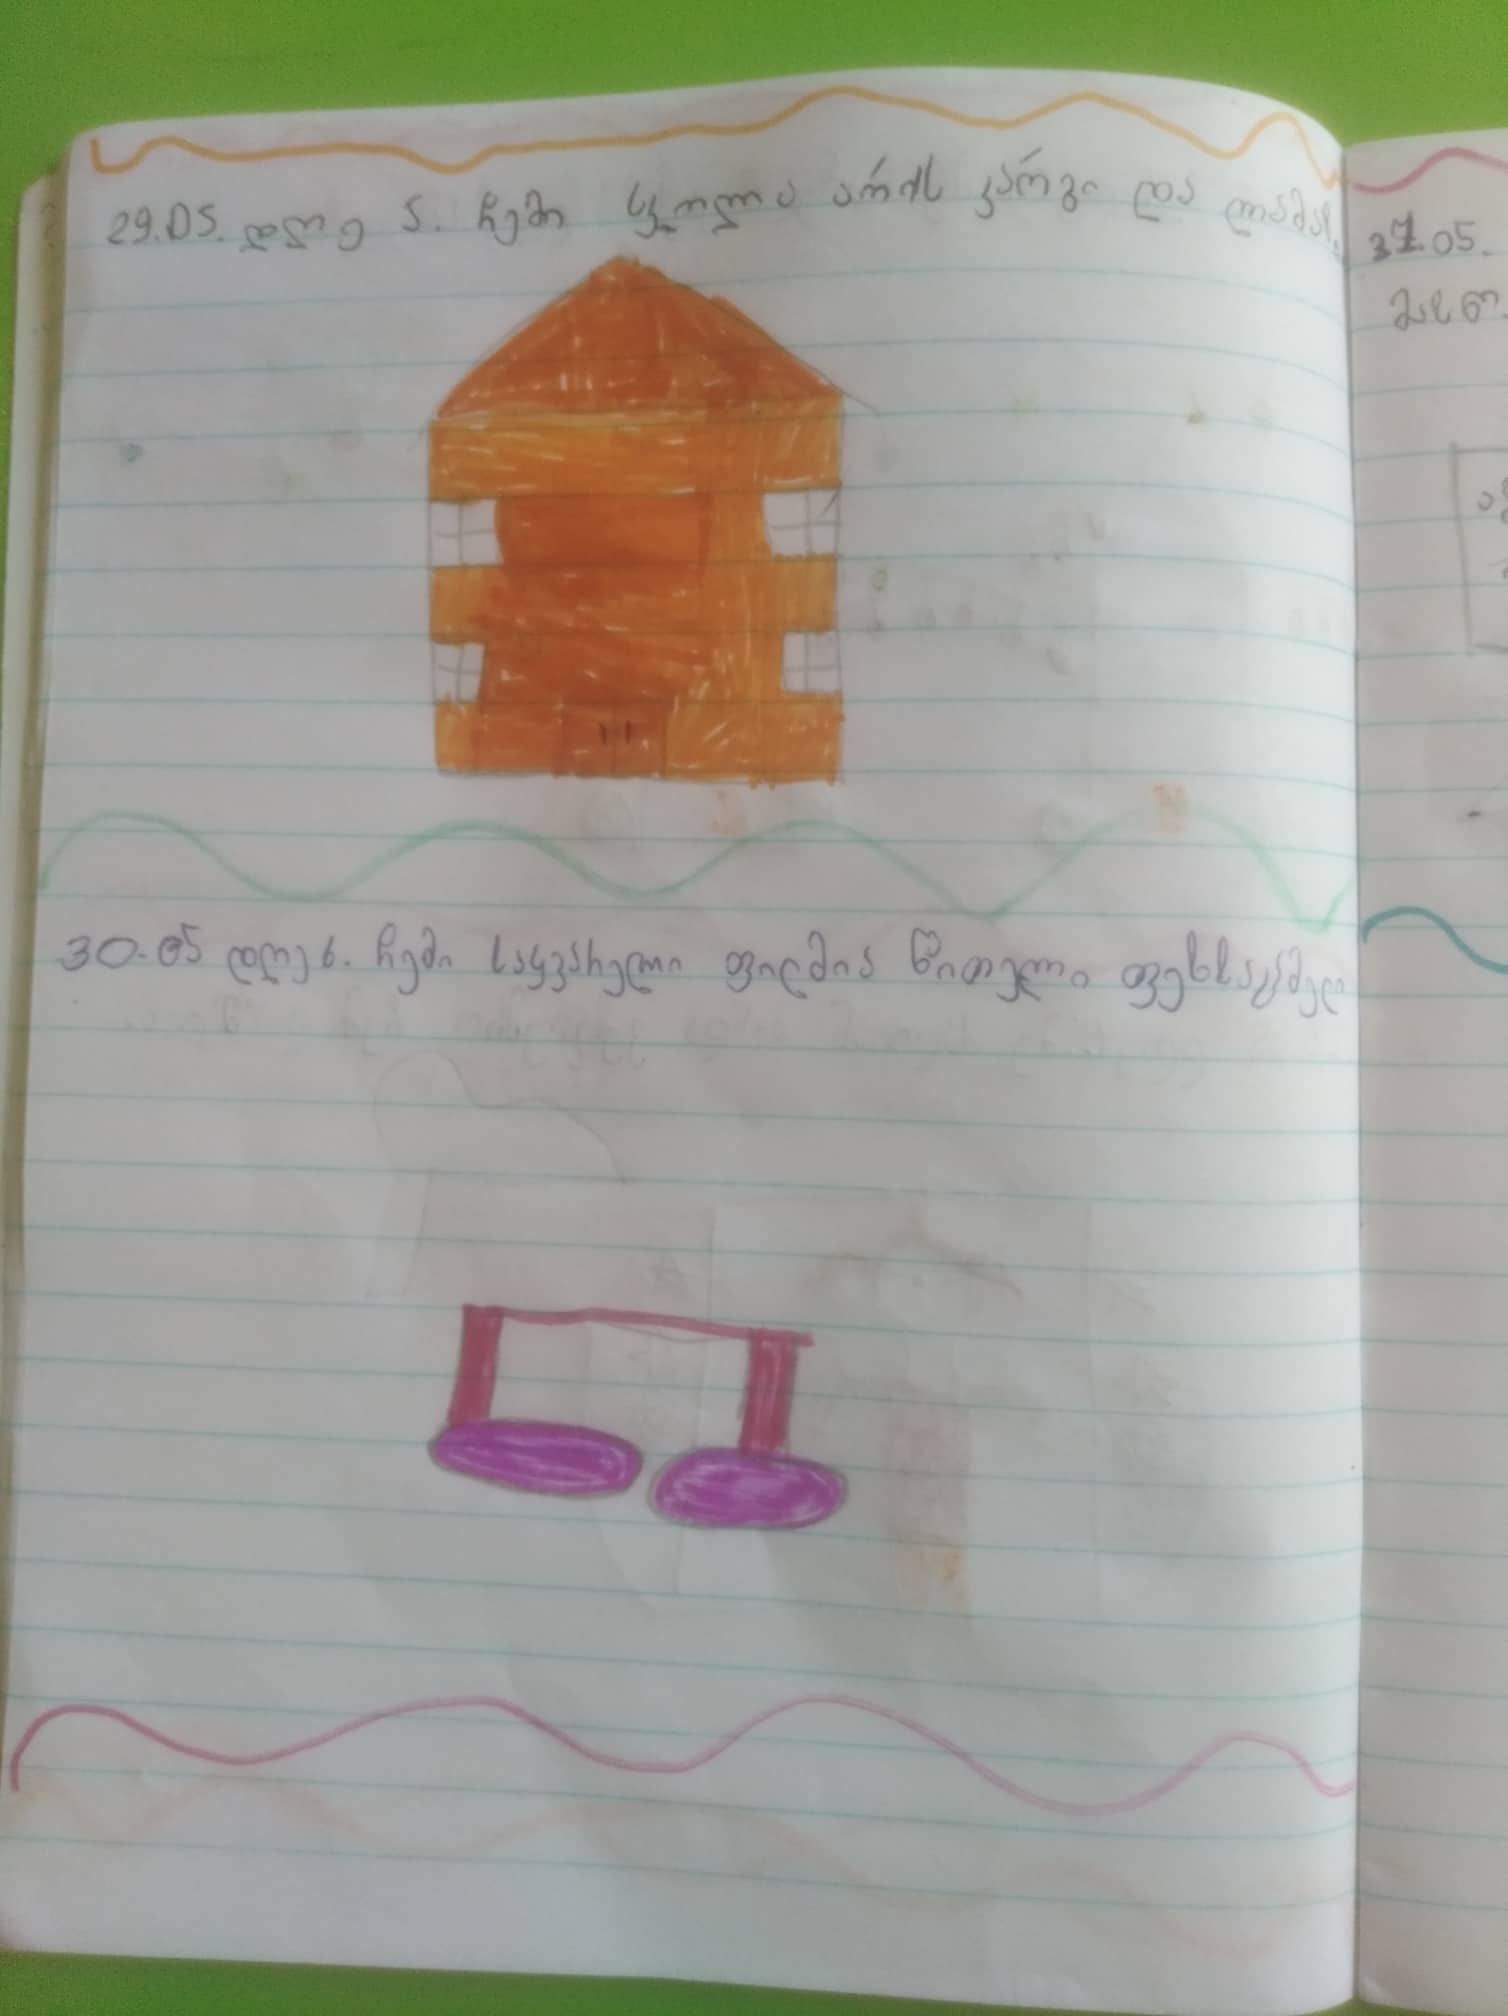 29.05. დღე 5. ჩემი სკოლა არის კარგი და ლამაზ.
30.05 დღე 6. ჩემი საყვარელი ფილმია წითელი ფეხსაცმელი
37.05.